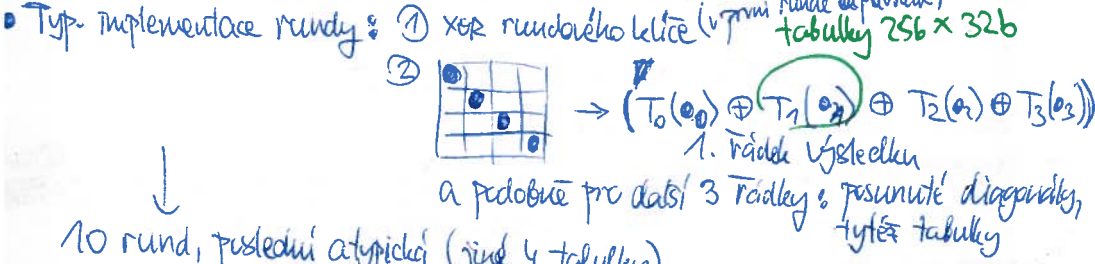 • Typ. implementace rundy: ① XOR rundového klíče (v první rundě
tabulky 256 × 32b
② → (T₀(●₀) ⊕ T₁(●₁) ⊕ T₂(●₂) ⊕ T₃(●₃))
1. řádek výsledku
a podobně pro další 3 řádky: posunuté diagonály,
tytéž tabulky
↓
10 rund, poslední atypická (jiné 4 tabulky)